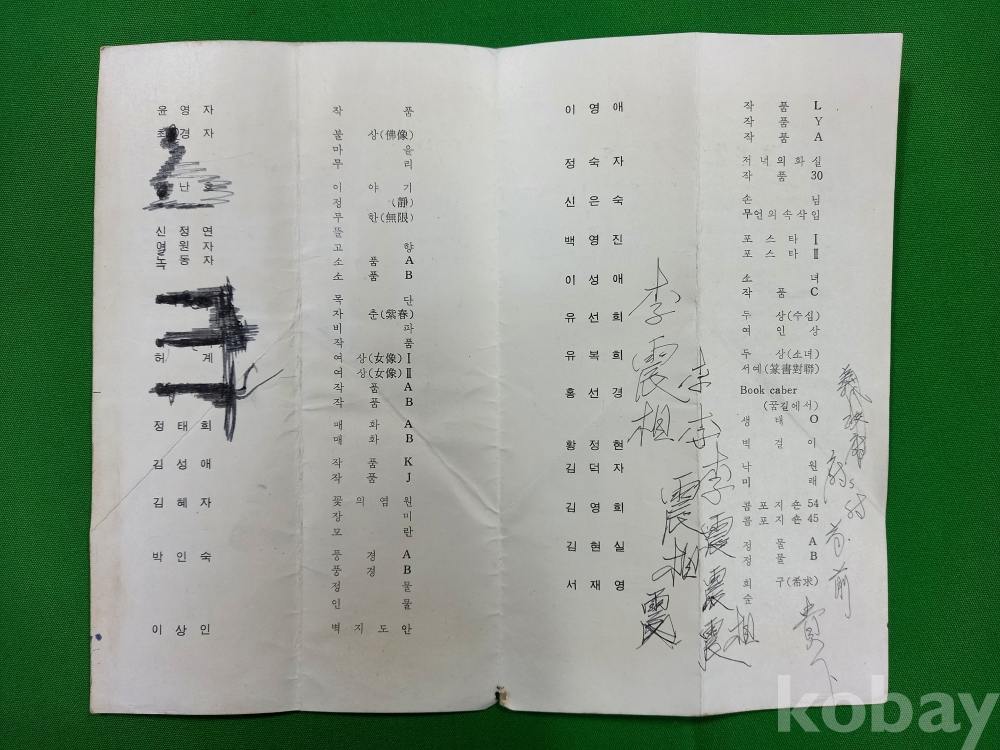 윤영자 작품
경자 불상(佛像)
마을
무리
난호 이야기
정(靜)
무한(無限)
신정연 뜰
원자 고향
노동자 소품 A
소품 B
목단
자춘(紫春)
비파
작품
허계 여상(女像) Ⅰ
여상(女像) Ⅱ
작품 A
작품 B
정태희 매화 A
매화 B
김성애 작품 K
작품 J
김혜자 꽃의염원
장미
모란
박인숙 풍경 A
풍경 B
정물
인물
이상인 벽지도안
이영애 작품 L
작품 Y
작품 A
정숙자 저녁의화실
작품 30
신은숙 손님
무언의속삭임
백영진 포스타 Ⅰ
포스타 Ⅱ
이성애 소녀
작품 C
유선희 두상(수심)
여인상
유복희 두상(소녀)
서예(篆書對聯)
홍선경 Book caber
(꿈길에서)
생태 O
황정현 벽걸이
김덕자 낙원
미래
김영희 콤포지숀 54
콤포지숀 45
김현실 정물 A
정물 B
서재영 희구(希求)
숲
李震相
李
李
李震震震相
震相震
前
kobay